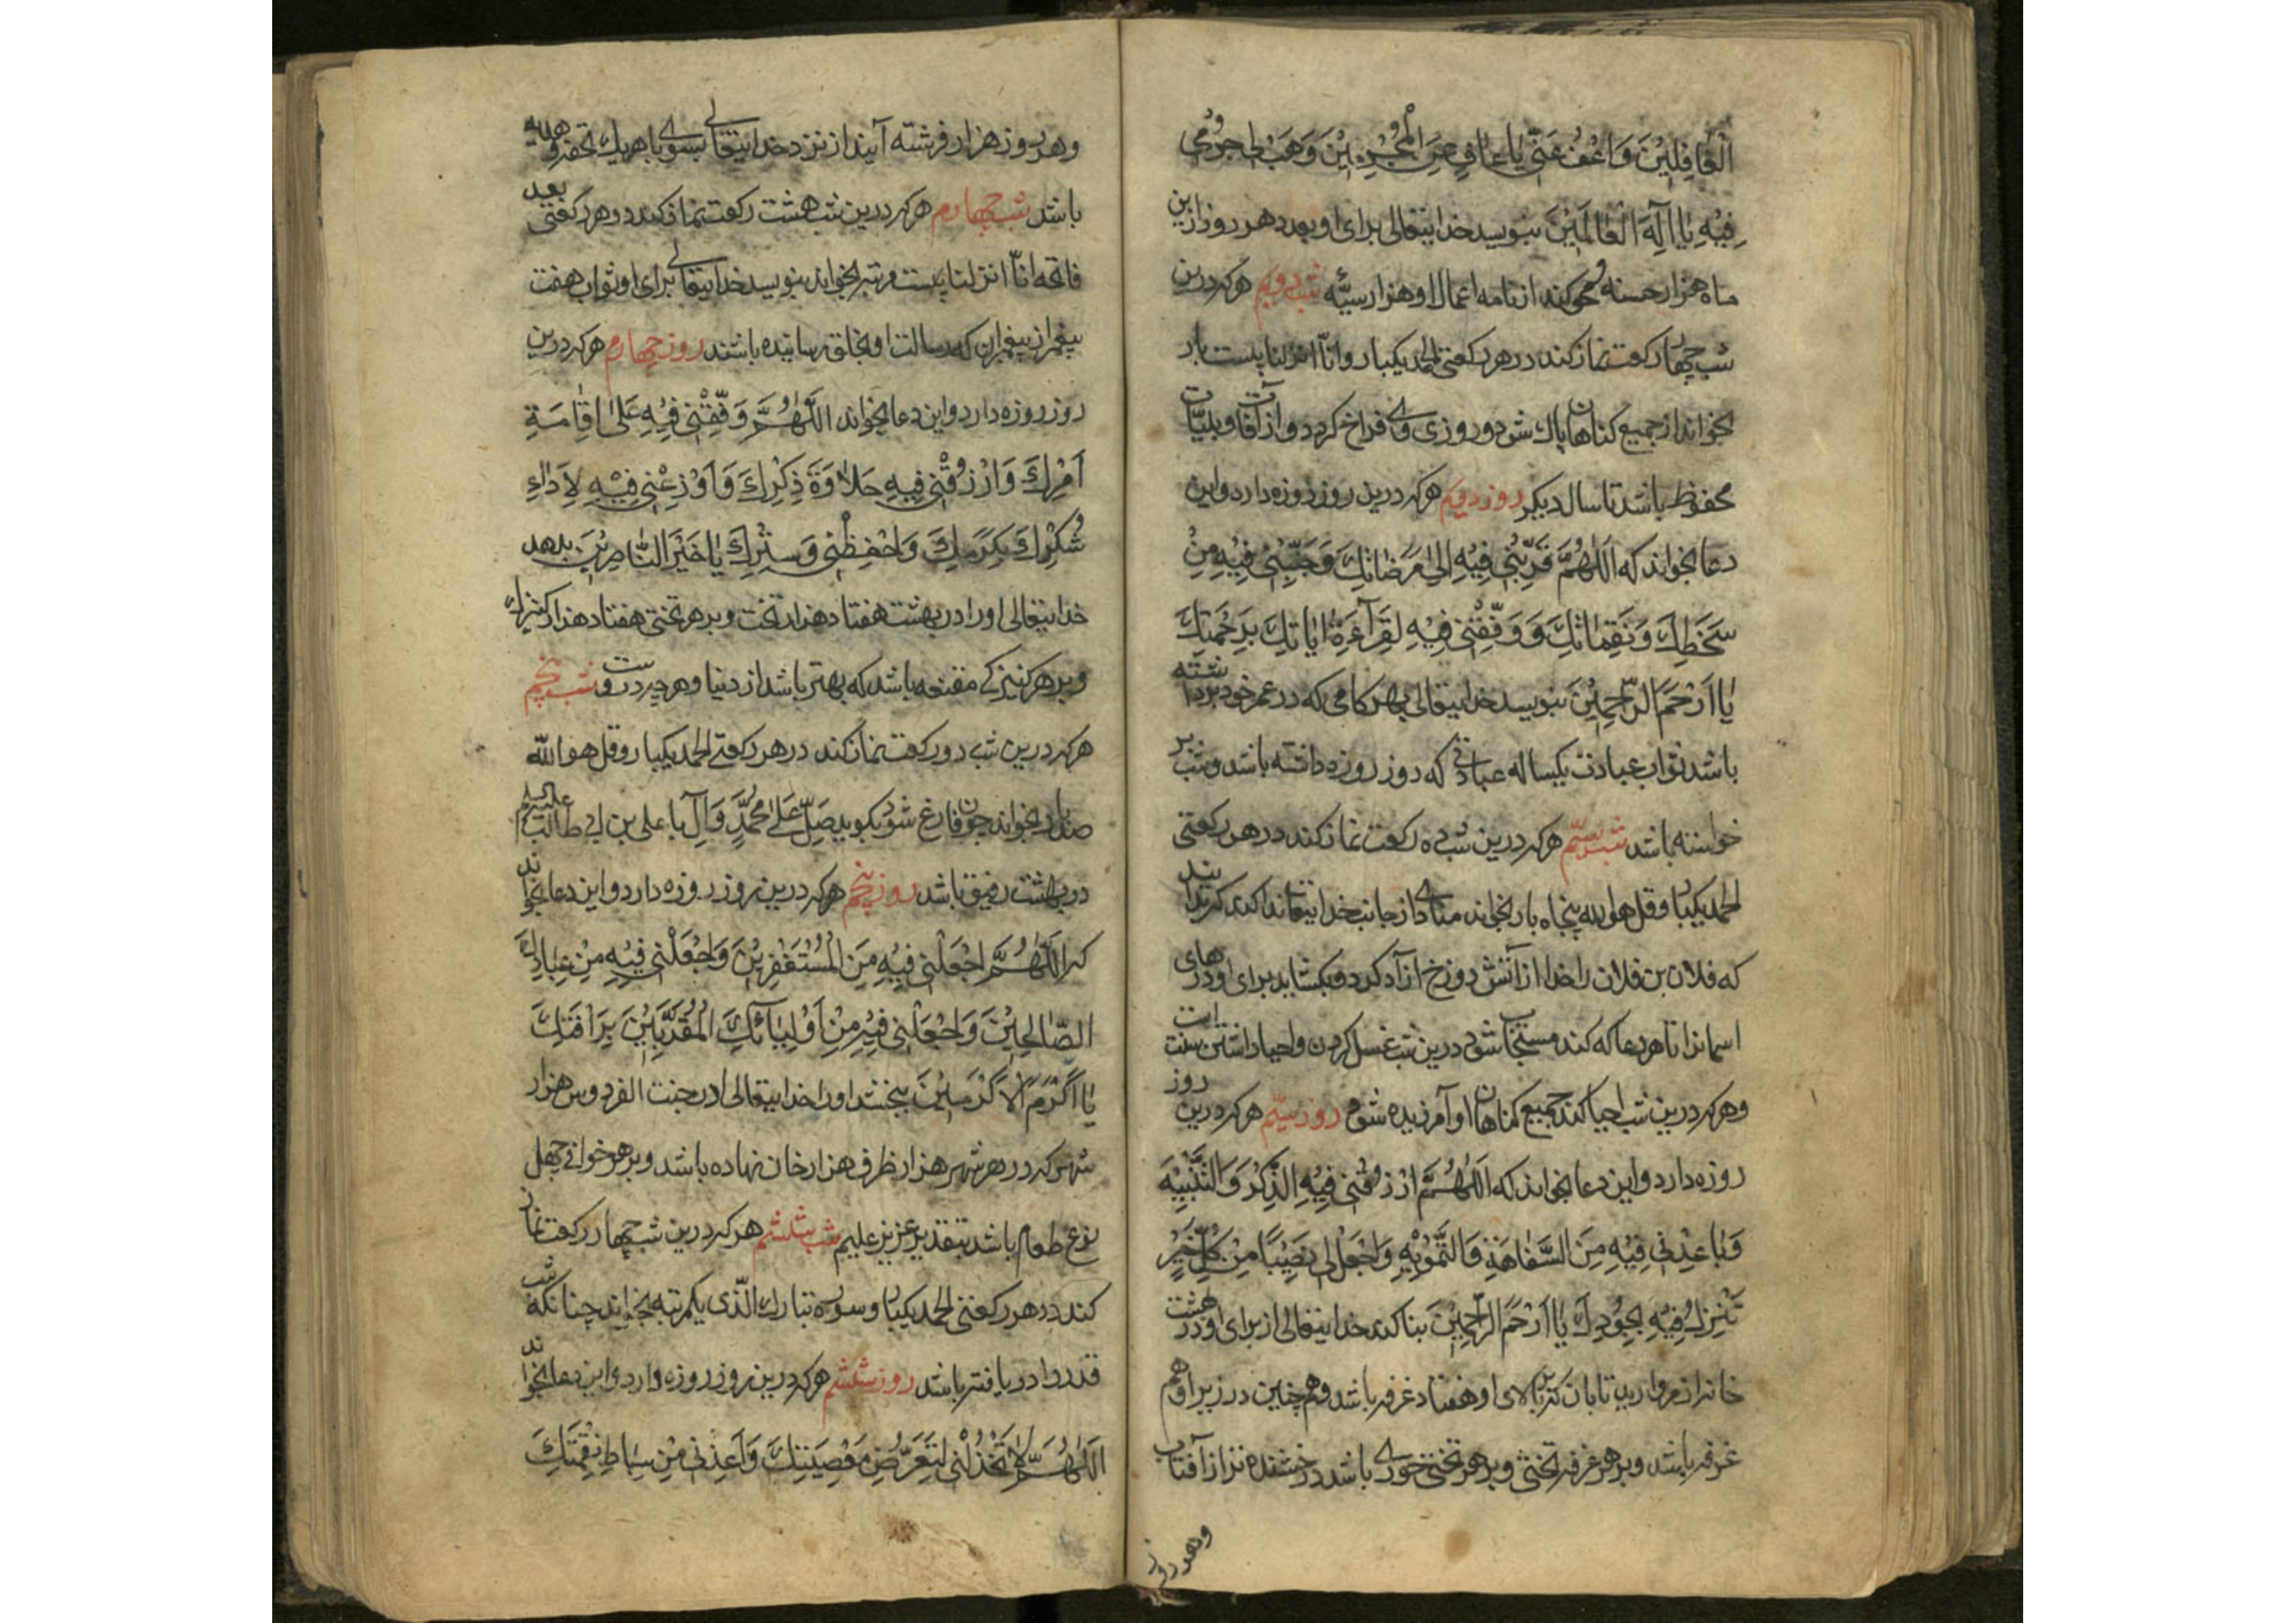 الْغَافِلِيْنَ وَاعْفُ عَنّي يَا عَافِ عَنِ الْمُجْرِمِيْنَ وَهَبْ لي جُرْمي
فِيْهِ يٰا اِلٰهَ الْعٰالَمِيْنَ بنویسد خدایتعالی برای او و بعدد هر روز ازین
ماه هزار حسنه و محو کند از نامه اعمال او هزار سیّئه شب دویم هرکه درین
شب چهار رکعت نماز کند در هر رکعتی الحمد یکبار و انّا انزلنا بیست بار
بخواند از جمیع کناهان پاك شود و روزی وی فراخ کردد و از آفات و بلیّات
محفوظ باشد تا سال دیکر روز دویم هرکه درین روز روزه دارد و این
دعا بخواند که اَللّٰهُمَّ قَرِّبْني فِيْهِ اِلىٰ مَرَضٰاتِكَ وَجَنِّبْني فِيْهِ مِنْ
سَخَطِكَ وَنَقِمٰاتِكَ وَوَفِّقْني فِيْهِ لِقِرٰآءَةِ اٰيٰاتِكَ بِرَحْمَتِكَ
يٰا اَرْحَمَ الرّٰحِمِيْنَ بنویسد خدایتعالی بهر کامی که در عمر خود برداشته
باشد ثواب عبادت یکساله عبادتی که روز روزه داشته باشد و شب بر
خواسته باشد شب سیّم هرکه درین شب ده رکعت نماز کند در هر رکعتی
الحمد یکبار و قل هو الله پنجاه بار بخواند منادی از جانب خدایتعالی ندا کند که بدانید
که فلان بن فلان را خدا از آتش دوزخ آزاد کرد و بکشاید برای او درهای
اسمانرا تا هر دعا که کند مستجاب شود درین شب غسل کردن و احیا داشتن سنت است
و هرکه درین شب احیا کند جمیع کناهان او آمرزیده شود روز سیّم هرکه درین روز
روزه دارد و این دعا بخواند که اَللّٰهُمَّ ارْزُقْني فِيْهِ الذِّكْرَ وَالتَّنْبِيْهَ
وَبٰاعِدْني فِيْهِ مِنَ السَّفٰاهَةِ وَالتَّمْوِيْهِ وَاجْعَلْ لي نَصِيْبًا مِنْ كُلِّ خَيْرٍ
تُنْزِلُ فِيْهِ بِجُوْدِكَ يٰا اَرْحَمَ الرّٰحِمِيْنَ بنا کند خدایتعالی از برای او در بهشت
خانه از مروارید تابان که بر بالای او هفتاد غرفه باشد و همچنین در زیر او هم
غرفه باشد و بر هر غرفه تختی و بر هر تختی حوری باشد درخشنده تر از آفتاب
و هر روز
و هر روز هزار فرشته آیند از نزد خدایتعالی بسوی با هریك تحفه و هدیه
باشد شب چهارم هرکه درین شب هشت رکعت نماز کند و در هر رکعتی بعد
فاتحه انّا انزلنا بیست مرتبه بخواند بنویسد خدایتعالی برای او ثواب هفت
پیغمبر از پیغمبران که رسالت او بخلق رسانیده باشند روز چهارم هرکه درین
روز روزه دارد و این دعا بخواند اَللّٰهُمَّ وَفِّقْني فِيْهِ عَلىٰ اِقٰامَةِ
اَمْرِكَ وَارْزُقْني فِيهِ حَلٰاوَةَ ذِكْرِكَ وَاَوْزِعْني فِيْهِ لِاَدٰاءِ
شُكْرِكَ بِكَرَمِكَ وَاحْفِظْني وَسِتْرِكَ يٰا خَيْرَ النّٰاصِرِيْنَ بدهد
خدایتعالی اورا در بهشت هفتاد هزار تخت و بر هر تختی هفتاد هزار کنیزك
و بر هر کنیزکی مقنعه باشد که بهتر باشد از دنیا و هرچه دروست شب پنجم
هرکه درین شب دو رکعت نماز کند در هر رکعتی الحمد یکبار و قل هو الله
صد بار بخواند چون فارغ شود بکوید صَلِّ عَلىٰ مُحَمَّدٍ وَآلِ با علی بن ابی طالب علیه السلام
در بهشت رفیق باشد روز پنجم هرکه درین روز روزه دارد و این دعا بخواند
که اَللّٰهُمَّ اجْعَلْني فِيْهِ مِنَ الْمُسْتَغْفِرِيْنَ وَاجْعَلْني فِيْهِ مِنْ عِبٰادِكَ
الصّٰالِحِيْنَ وَاجْعَلْني فِيْهِ مِنْ اَوْلِيٰائِكَ الْمُقَرَّبِيْنَ بِرَاْفَتِكَ
يٰا اَكْرَمَ الْاَكْرَمِيْنَ ببخشد اورا خدایتعالی در جنت الفردوس هزار
شهر که در هر شهر هزار ظرف هزار خان نهاده باشد و بر هر خوانی چهل
نوع طعام باشد بتقدیر عزیز علیم شب ششم هرکه درین شب چهار رکعت نماز
کند در هر رکعتی الحمد یکبار و سوره تبارك الّذی یکمرتبه بخواند چنانکه شب
قدر را دریافته باشد روز ششم هرکه درین روز روزه دارد و این دعا بخواند
اَللّٰهُمَّ لٰا تَخْذُلْني لِتَعَرُّضِ مَعْصِيَتِكَ وَاَعِذْني مِنْ سِيٰاطِ نِقْمَتِكَ